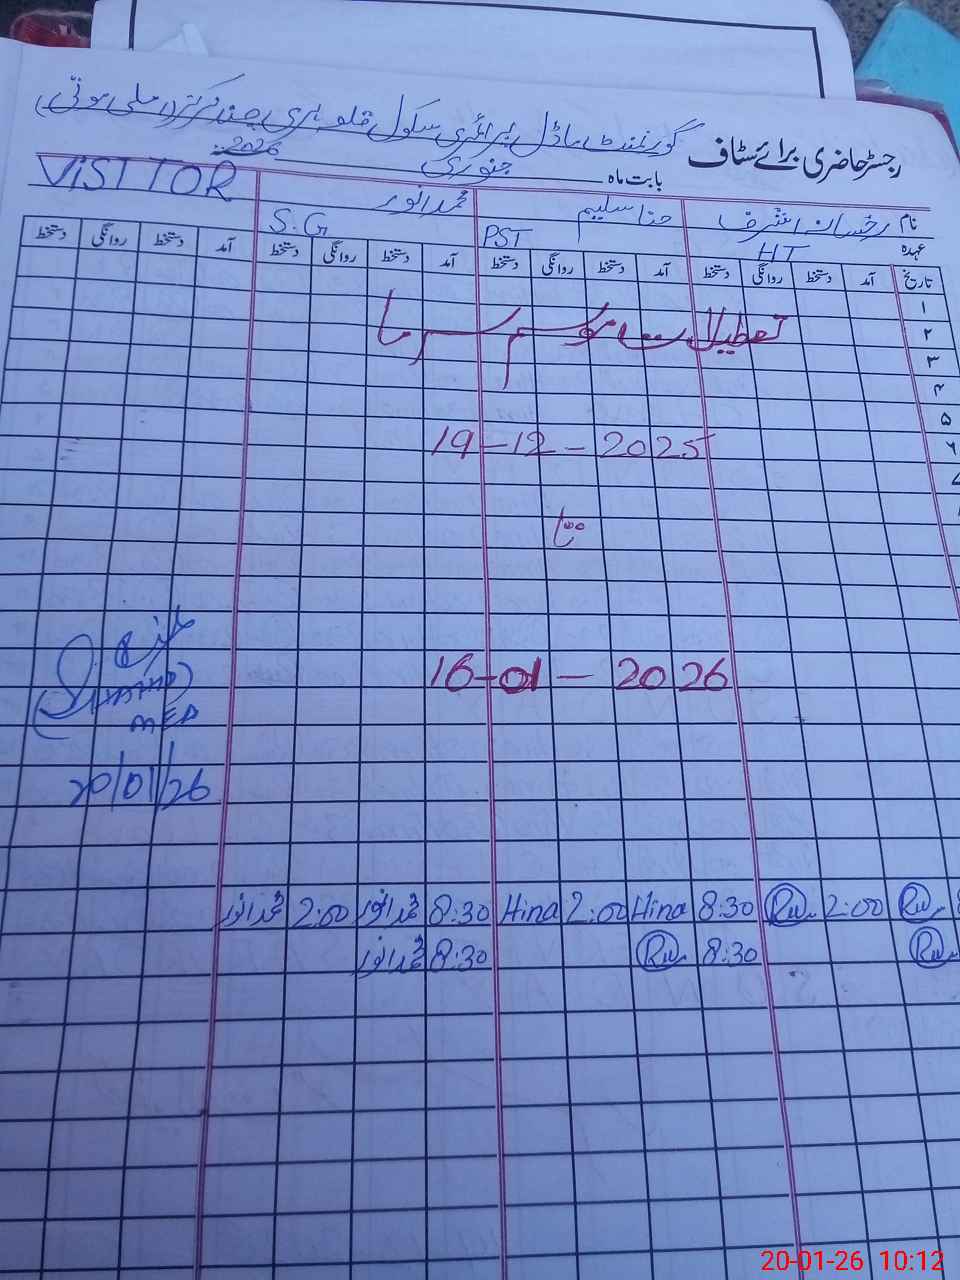 گورنمنٹ ماڈل پرائمری سکول
رجسٹر حاضری برائے سٹاف
بابت ماہ جنوری 2026
نام رخسانہ اشرف حنا سلیم محمد انور VISITOR
عہدہ HT PST S.G
تاریخ آمد دستخط روانگی دستخط آمد دستخط روانگی دستخط آمد دستخط روانگی دستخط آمد دستخط روانگی دستخط
۱
۲ تعطیلات موسم سرما
۳
۴
۵
۶ 19-12-2025
۷
تا
16-01-2026
MEA
20/01/26
Rw 2:00 Rw 8:30 Hina 2:00 Hina 8:30 محمد انور 2:00 محمد انور
Rw 8:30 Rw 8:30 محمد انور
20-01-26 10:12